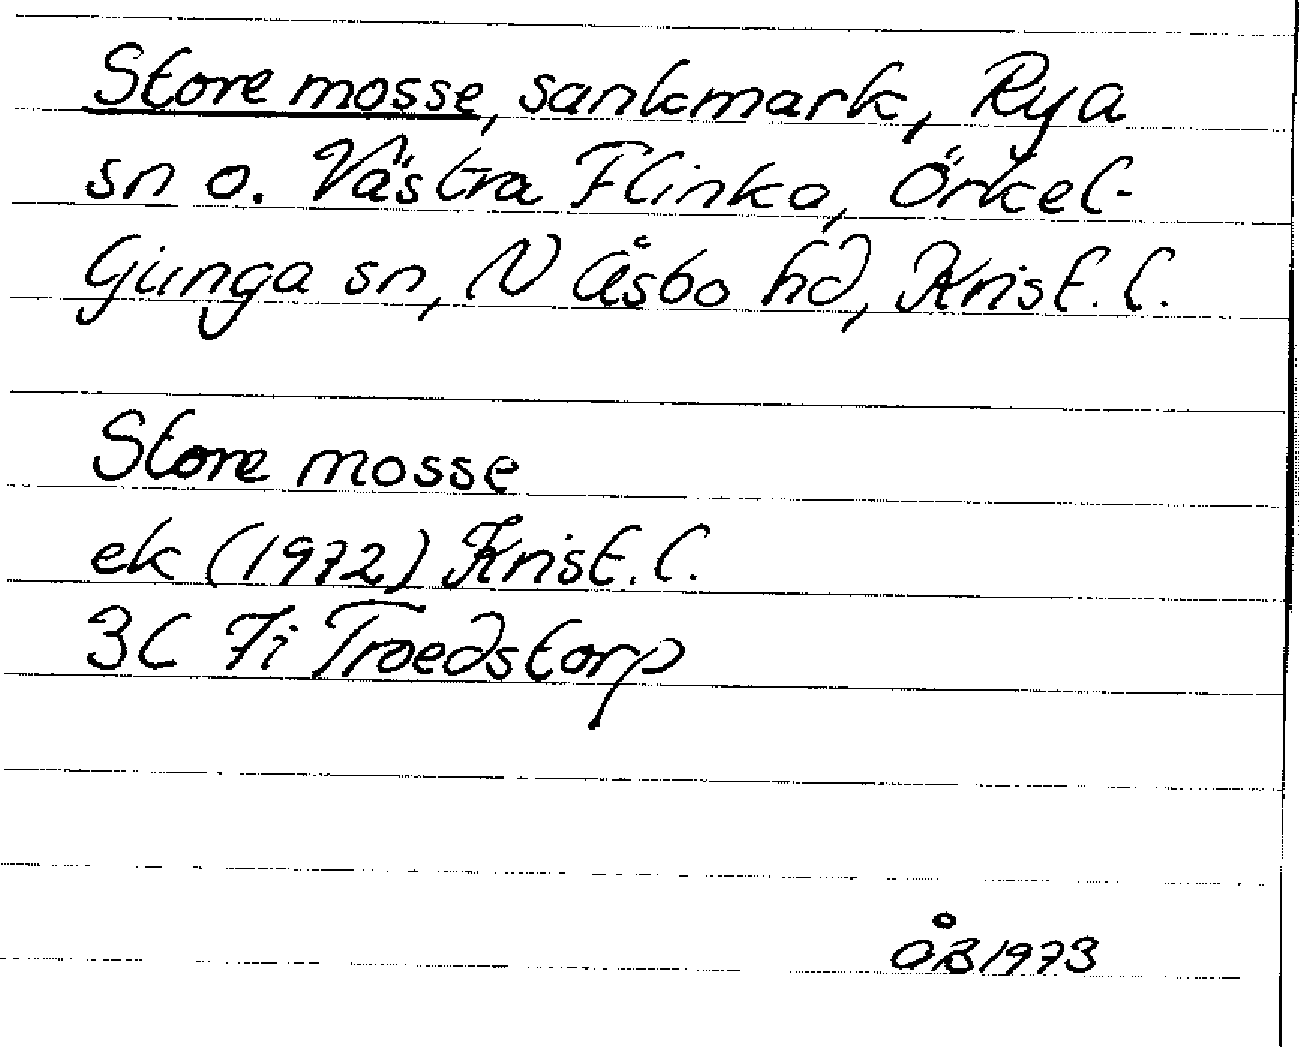 Store mosse, sankmark, Rya
sn o. Västra Flinka, Örkel-
Gunga sn, N Åsbo hd, Krist. l.
Store mosse
ek (1972) Krist. l.
3C 7i Troedstorp
ÅB 1973